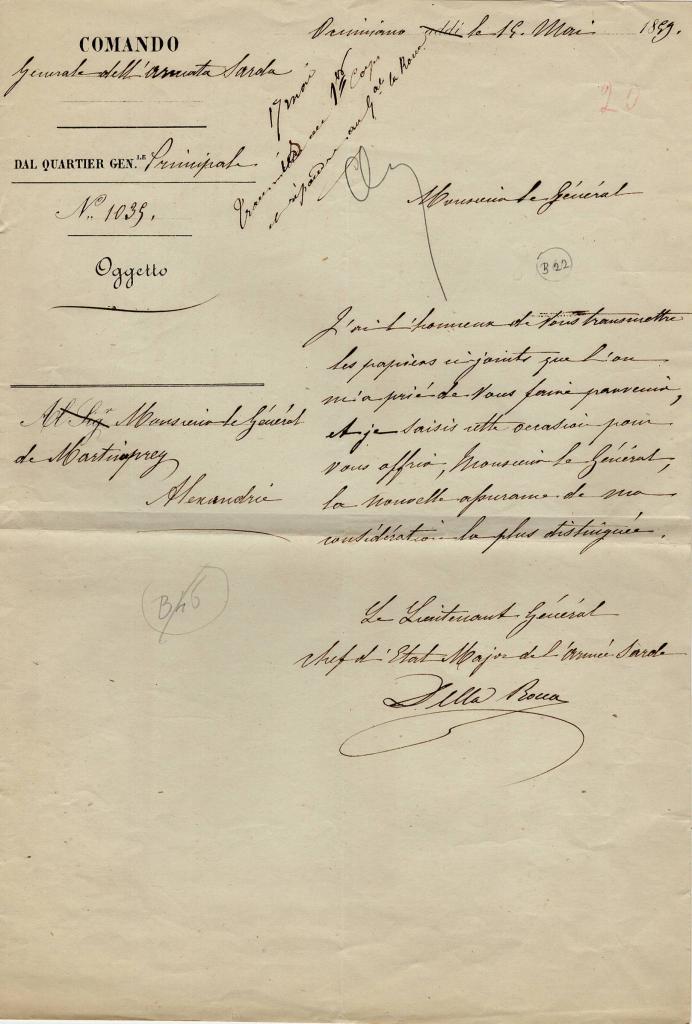 COMANDO
Generale dell'armata Sarda
DAL QUARTIER GEN.LE Principale
N.o 1035.
Oggetto
Al Sigr Monsieur le Général
de Martimprey
Alexandrie
B46
Occimiano addi le 15 Mai 1859.
17 mai
transmettre au 1er Corps
et répondre au Gal la Rocca
20
Monsieur le Général
B 22
J'ai l'honneur de Vous transmettre
les papiers ci joints que l'on
m'a prié de Vous faire parvenir,
et je saisis cette occasion pour
vous offrir, Monsieur le Général,
la nouvelle assurance de ma
considération la plus distinguée.
Le Lieutenant Général
chef d'Etat Major de l'armée Sarde
Della Rocca